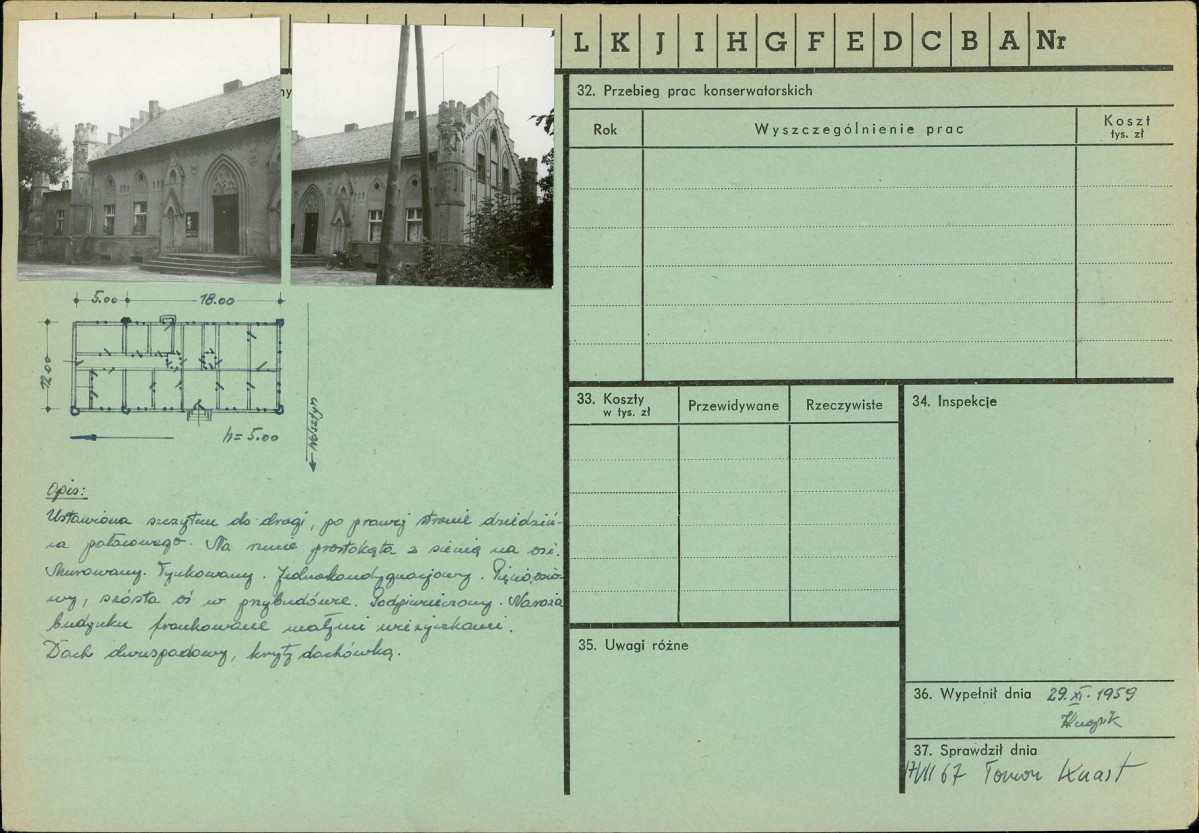 L K J I H G F E D C B A Nr
ny
32. Przebieg prac konserwatorskich
Rok
Wyszczególnienie prac
Koszt
tys. zł
5.00
18.00
12.00
h=5.00
Wolsztyn
Opis:
Ustawiona szczytem do drogi, po prawej stronie dziedziń-
ca pałacowego. Na rzucie prostokąta z sienią na osi.
Murowany. Tynkowany. Jednokondygnacyjowy. Pięcioosio-
wy, szósta oś w przybudówce. Podpiwniczony. Naroża
budynku flankowane małymi wieżyczkami.
Dach dwuspadowy, kryty dachówką.
33. Koszty
w tys. zł
Przewidywane
Rzeczywiste
34. Inspekcje
35. Uwagi różne
36. Wypełnił dnia 29.XI.1959
37. Sprawdził dnia
67 Tomon Knast